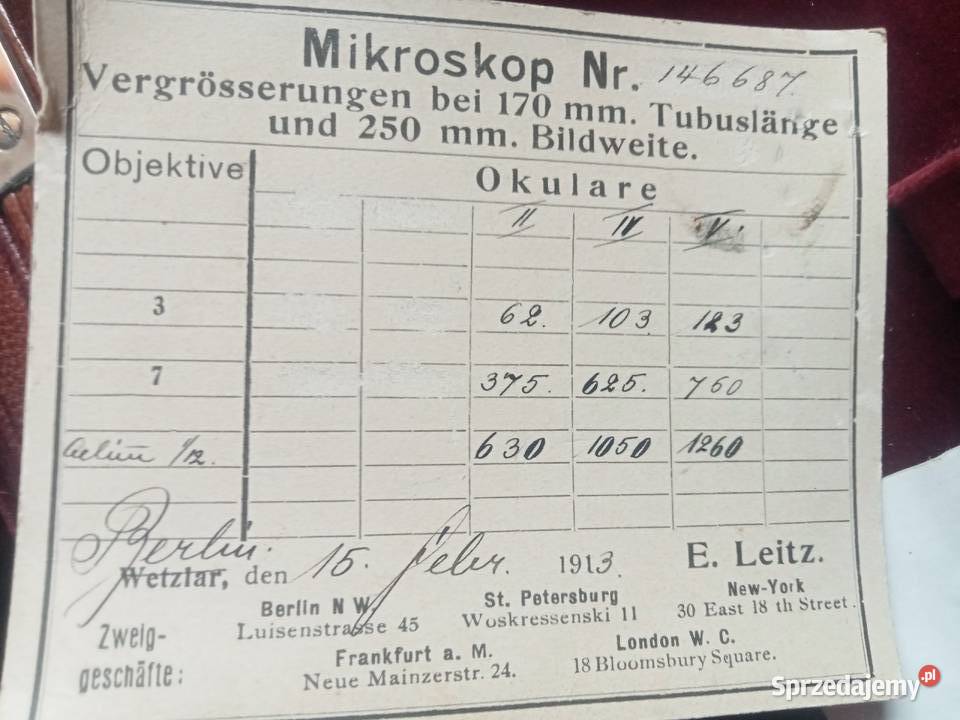 Mikroskop Nr. 146687.
Vergrösserungen bei 170 mm. Tubuslänge
und 250 mm. Bildweite.
Objektive
Okulare
II IV V.
3 62. 103 123
7 375. 625. 760
1/12. 630 1050 1260
Berlin.
Wetzlar, den 15. Febr. 1913.
E. Leitz.
Zweig-
geschäfte:
Berlin N W.
Luisenstrasse 45
St. Petersburg
Woskressenski 11
New-York
30 East 18 th Street.
Frankfurt a. M.
Neue Mainzerstr. 24.
London W. C.
18 Bloomsbury Square.
Sprzedajemy.pl